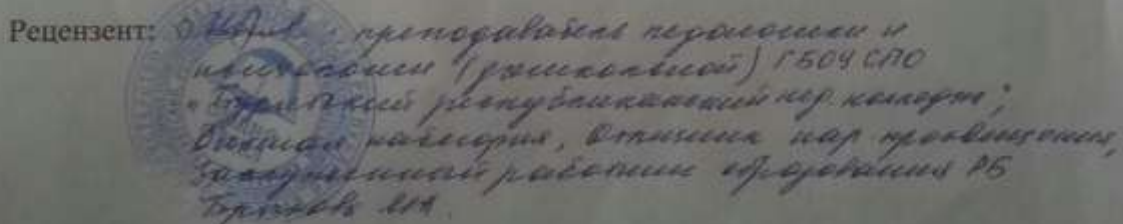 Рецензент: преподаватель педагогики и
психологии (дошкольной) ГБОУ СПО
"Бурятский республиканский пед. колледж",
Высшая категория, Отличник нар просвещения,
Заслуженный работник образования РБ